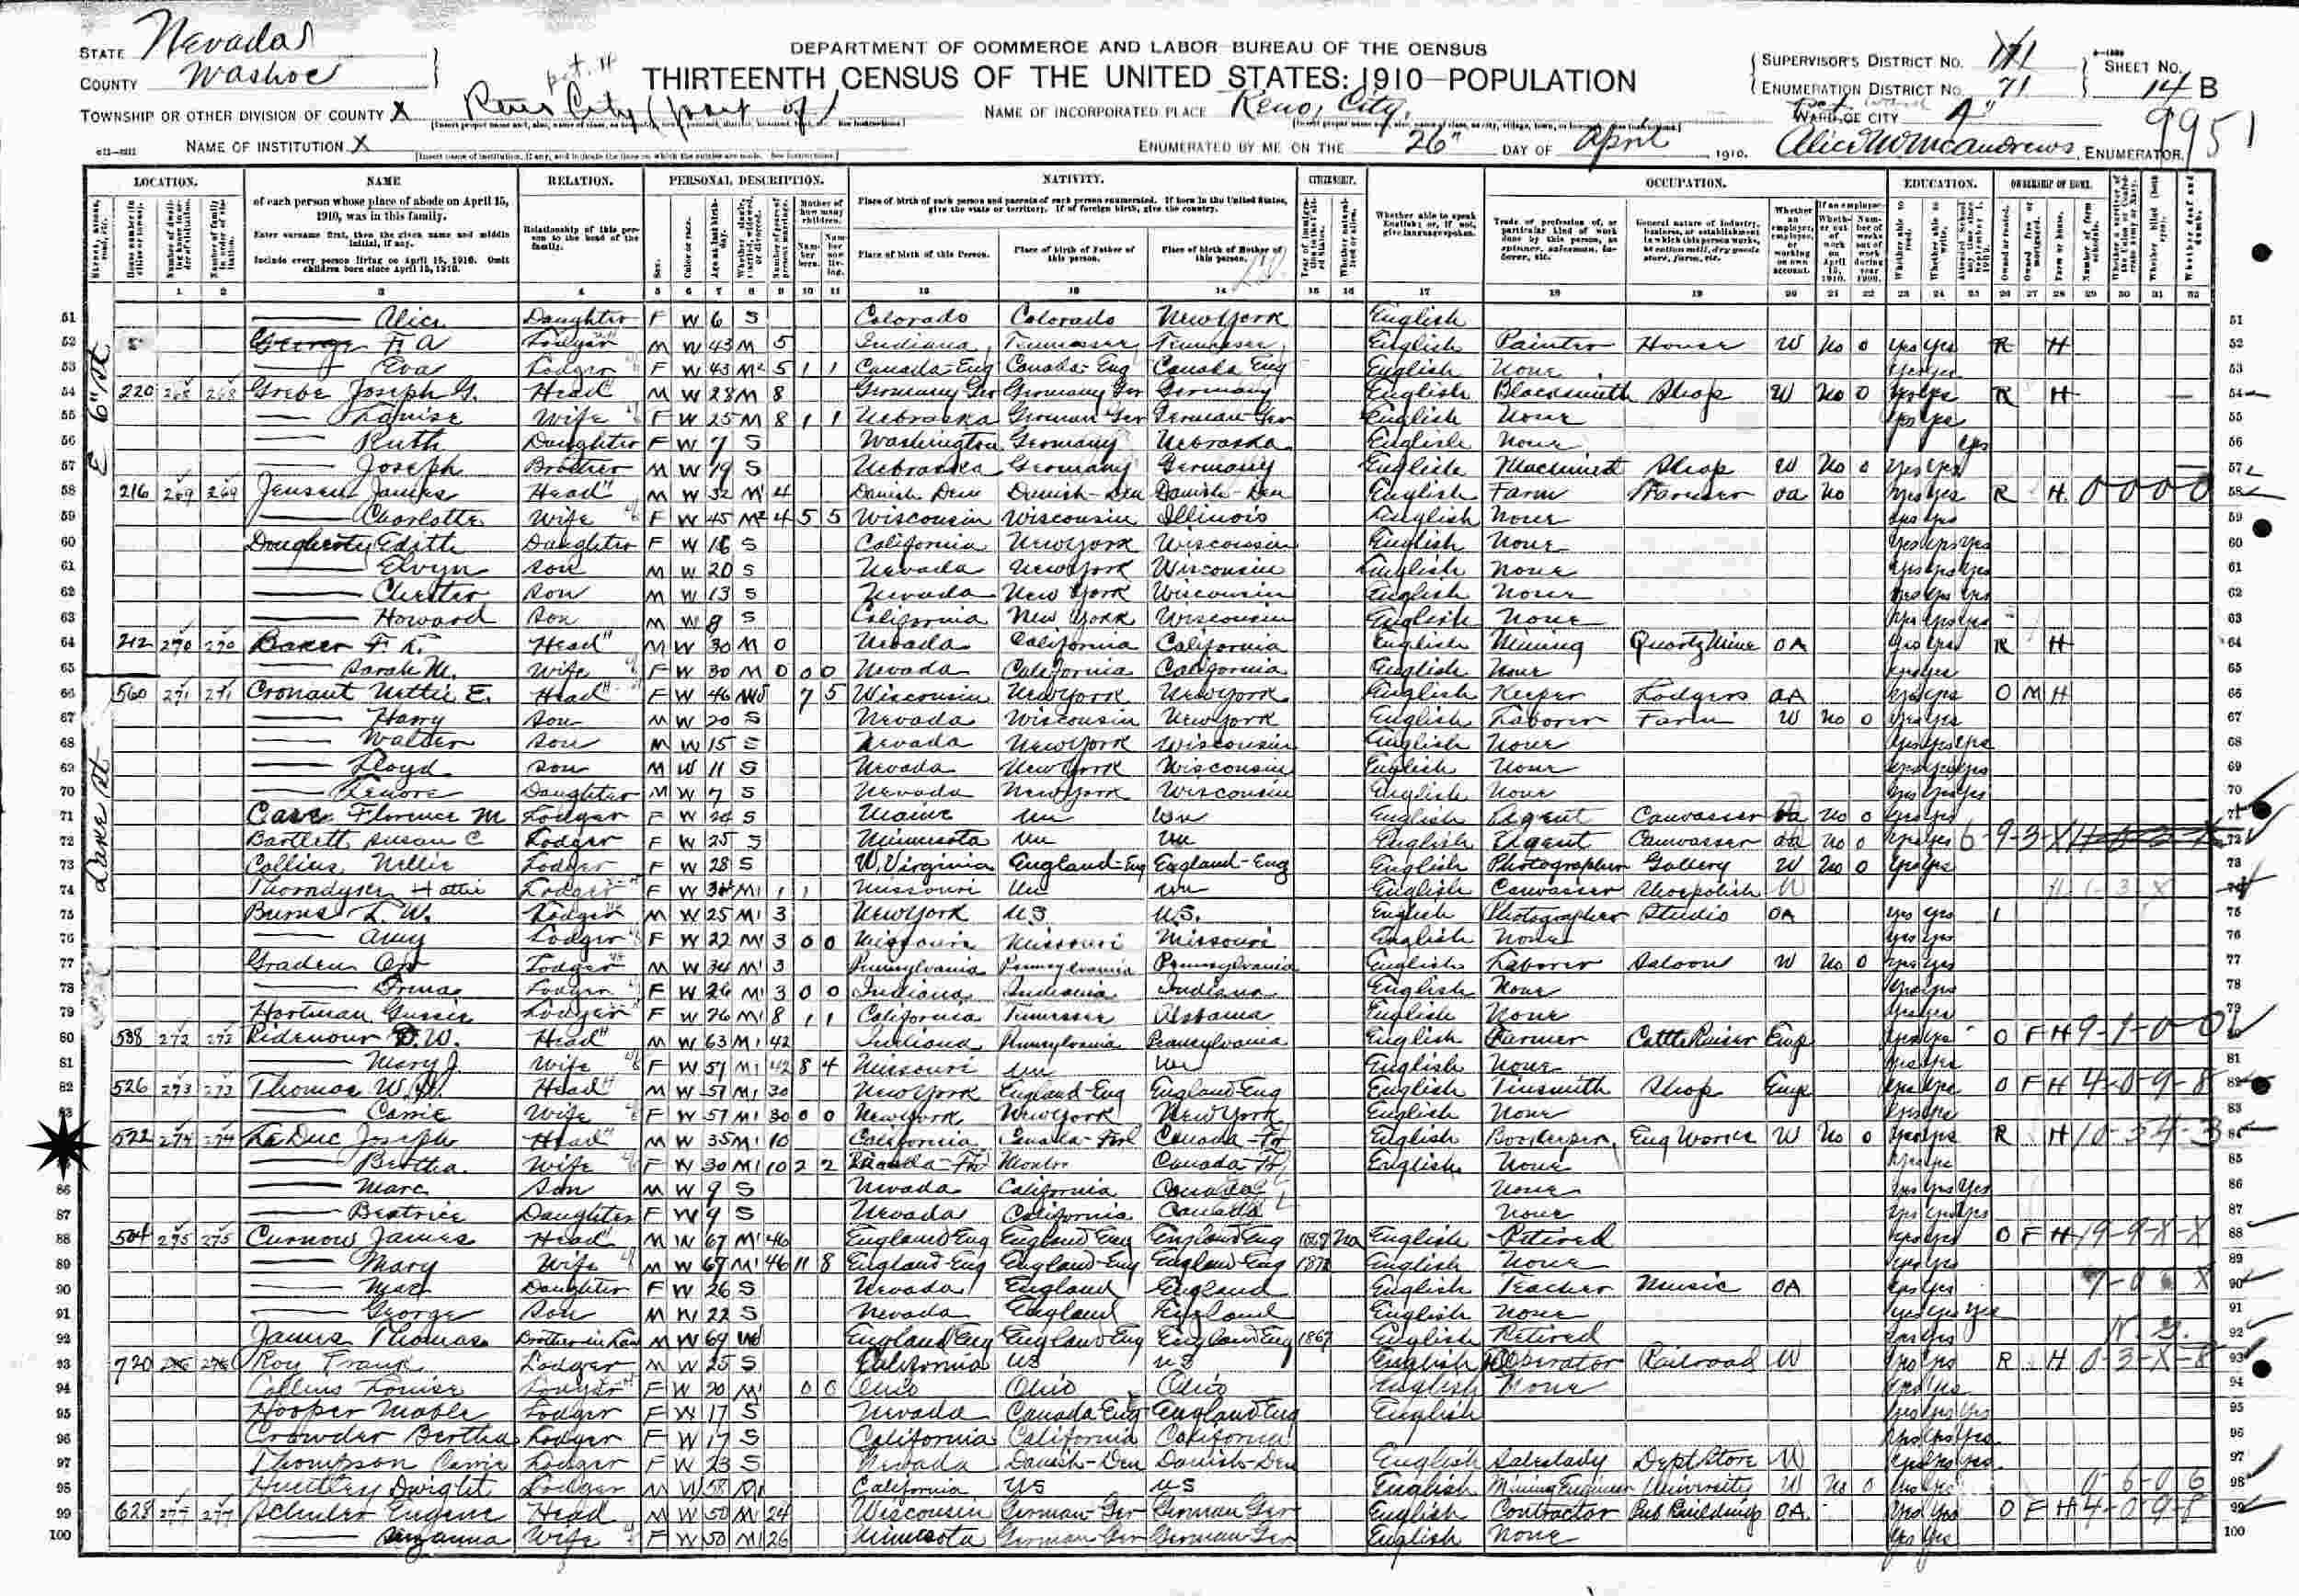 STATE Nevada
COUNTY Washoe
DEPARTMENT OF COMMERCE AND LABOR-BUREAU OF THE CENSUS
THIRTEENTH CENSUS OF THE UNITED STATES: 1910-POPULATION
SUPERVISOR'S DISTRICT No.
ENUMERATION DISTRICT No. 71
SHEET No. 14 B
TOWNSHIP OR OTHER DIVISION OF COUNTY X Reno City (part of)
NAME OF INCORPORATED PLACE Reno City,
WARD OF CITY 4"
9951
NAME OF INSTITUTION X
ENUMERATED BY ME ON THE 26" DAY OF April, 1910. Alice W McAndrews, ENUMERATOR.
LOCATION. NAME RELATION. PERSONAL DESCRIPTION. NATIVITY. CITIZENSHIP. OCCUPATION. EDUCATION. OWNERSHIP OF HOME.
of each person whose place of abode on April 15, 1910, was in this family.
Enter surname first, then the given name and middle initial, if any.
Include every person living on April 15, 1910. Omit children born since April 15, 1910.
Relationship of this person to the head of the family.
Place of birth of each person and parents of each person enumerated. If born in the United States, give the state or territory. If of foreign birth, give the country.
Place of birth of this Person. Place of birth of Father of this person. Place of birth of Mother of this person.
Whether able to speak English; or, if not, give language spoken.
E 6" St
51 Alice Daughter F W 6 S Colorado Colorado New York English 51
52 George F A Lodger M W 43 M 5 Indiana Tennessee Tennessee English Painter House W No 0 Yes Yes R H 52
53 Eva Lodger F W 43 M2 5 1 1 Canada-Eng Canada-Eng Canada Eng English None Yes Yes 53
54 220 268 268 Grebe Joseph G. Head M W 28 M 8 Germany Ger Germany Ger Germany English Blacksmith Shop W No 0 Yes Yes R H 54
55 Louise Wife F W 25 M 8 1 1 Nebraska German Ger German Ger English None Yes Yes 55
56 Ruth Daughter F W 7 S Washington Germany Nebraska English None Yes 56
57 Joseph Brother M W 19 S Nebraska Germany Germany English Machinist Shop W No 0 Yes Yes 57
58 216 269 269 Jensen James Head M W 32 M1 4 Danish Den Danish-Den Danish-Den English Farm Farmer oa No Yes Yes R H 0 0 0 0 58
59 Charlotte Wife F W 45 M2 4 5 5 Wisconsin Wisconsin Illinois English None Yes Yes 59
60 Dougherty Edith Daughter F W 16 S California New York Wisconsin English None Yes Yes Yes 60
61 Elvyn Son M W 20 S Nevada New York Wisconsin English None Yes Yes Yes 61
62 Chester Son M W 13 S Nevada New York Wisconsin English None Yes Yes Yes 62
63 Howard Son M W 8 S California New York Wisconsin English None Yes Yes Yes 63
64 212 270 270 Baker F. Head M W 30 M 0 Nevada California California English Mining Quartz Mine OA Yes Yes R H 64
65 Sarah M. Wife F W 30 M 0 0 0 Nevada California California English None Yes Yes 65
Lake St
66 560 271 271 Cronaut Nettie E. Head F W 46 7 5 Wisconsin New York New York English Keeper Lodgers OA Yes Yes O M H 66
67 Harry Son M W 20 S Nevada Wisconsin New York English Laborer Farm W No 0 Yes Yes 67
68 Walter Son M W 15 S Nevada New York Wisconsin English None Yes Yes Yes 68
69 Lloyd Son M W 11 S Nevada New York Wisconsin English None Yes Yes Yes 69
70 Lenore Daughter M W 7 S Nevada New York Wisconsin English None Yes Yes Yes 70
71 Case Florence M Lodger F W 24 S Maine Un Un English Agent Canvasser oa No 0 Yes Yes 71
72 Bartlett Susan C Lodger F W 25 S Minnesota Un Un English Agent Canvasser oa No 0 Yes Yes 6-9-3-X 72
73 Collins Nellie Lodger F W 28 S W. Virginia England-Eng England-Eng English Photographer Gallery W No 0 Yes Yes 73
74 Thorndyke Hattie Lodger F W M1 1 1 Missouri Un Un English Canvasser Shoe polish W 74
75 Burns L. W. Lodger M W 25 M1 3 New York U.S. U.S. English Photographer Studio OA Yes Yes 75
76 Amy Lodger F W 22 M1 3 0 0 Missouri Missouri Missouri English None Yes Yes 76
77 Graden Lodger M W 34 M1 3 Pennsylvania Pennsylvania Pennsylvania English Laborer Saloon W No 0 Yes Yes 77
78 Lodger F W 26 M1 3 0 0 Indiana Indiana Indiana English None Yes Yes 78
79 Hartman Gussie Lodger F W 26 M1 8 1 1 California Tennessee Alabama English None Yes Yes 79
80 538 272 272 Ridenour D. W. Head M W 63 M1 42 Indiana Pennsylvania Pennsylvania English Farmer Cattle Raiser Emp Yes Yes O F H 9-1-0-0 80
81 Mary J. Wife F W 57 M1 42 8 4 Missouri Un Un English None Yes Yes 81
82 526 273 273 Thomas W. Head M W 57 M1 30 New York England-Eng England-Eng English Tinsmith Shop Emp Yes Yes O F H 4-0-9-8 82
83 Carrie Wife F W 57 M1 30 0 0 New York New York New York English None Yes Yes 83
84 522 274 274 LeDuc Joseph Head M W 35 M1 10 California Canada-Fr Canada-Fr English Bookkeeper Eng Works W No 0 Yes Yes R H 10-34-3 84
85 Bertha Wife F W 30 M1 10 2 2 Canada-Fr Canada-Fr English None Yes Yes 85
86 Marc Son M W 9 S Nevada California Canada None Yes Yes Yes 86
87 Beatrice Daughter F W 9 S Nevada California Canada None Yes Yes Yes 87
88 504 275 275 Curnow James Head M W 67 M1 46 England Eng England Eng England Eng Na English Retired Yes Yes O F H 19-9-X-X 88
89 Mary Wife M W 67 M1 46 11 8 England-Eng England-Eng England-Eng 1872 English None Yes Yes 89
90 May Daughter F W 26 S Nevada England England English Teacher Music OA Yes Yes 90
91 George Son M W 22 S Nevada England England English None Yes Yes Yes 91
92 James Thomas Brother in Law M W 69 Wd England Eng England Eng England Eng 1867 English Retired Yes Yes 92
93 720 276 276 Roy Frank Lodger M W 25 S California US US English Operator Railroad W Yes Yes R H 0-3-X-8 93
94 Collins Louise Lodger F W 20 M1 0 0 Ohio Ohio Ohio English None Yes Yes 94
95 Hooper Mable Lodger F W 17 S Nevada Canada Eng England Eng English Yes Yes Yes 95
96 Crowder Bertha Lodger F W 17 S California California California Yes Yes Yes 96
97 Thompson Carrie Lodger F W 23 S Nevada Danish-Den Danish-Den English Saleslady Dept Store W Yes Yes Yes 97
98 Huntley Dwight Lodger M W 58 California US US English Mining Engineer University W No 0 Yes Yes 0-6-0-6 98
99 628 277 277 Schuler Eugene Head M W 50 M 24 Wisconsin German-Ger German Ger English Contractor Pub Buildings OA Yes Yes O F H 4-0-9-8 99
100 Suzanna Wife F W 50 M1 26 Minnesota German Ger German Ger English None Yes Yes 100